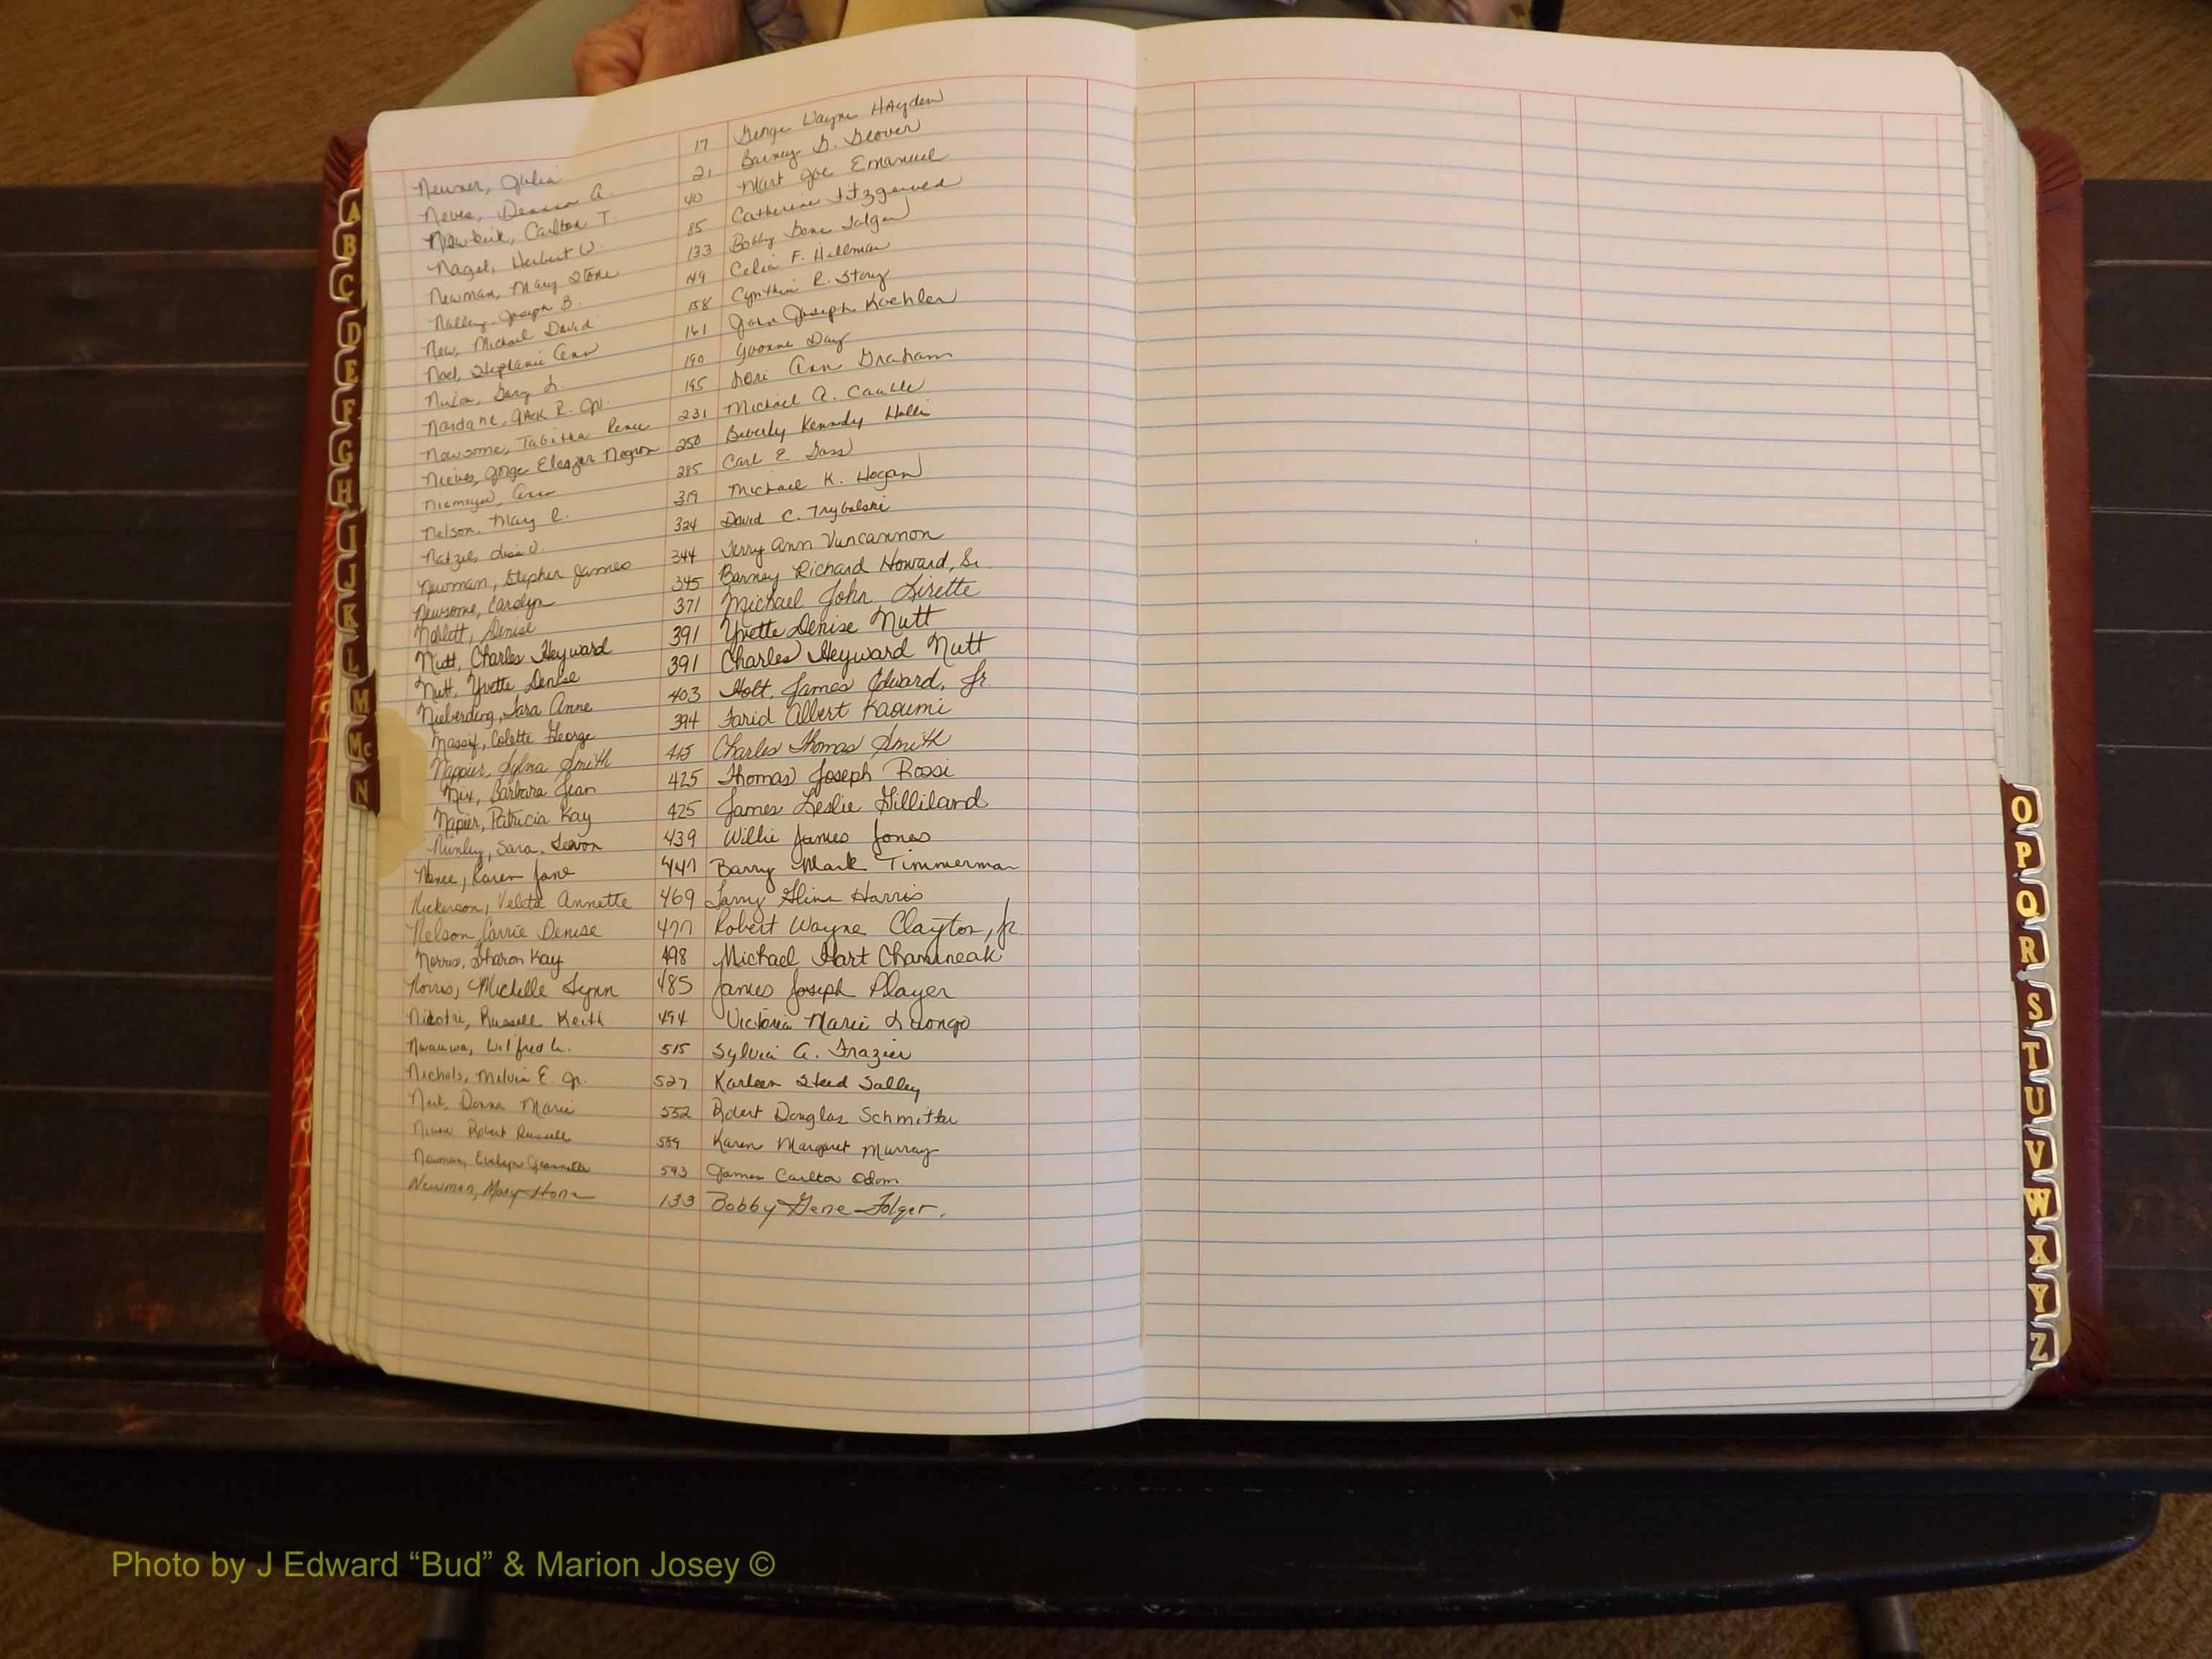 Neuner, Julia 17 George Wayne Hayden
Neves, Deanna A. 21 Barney G. Glover
Newkirk, Carlton T. 40 Mart Joe Emanuel
Nagel, Herbert W. 85 Catherine Fitzgerald
Newman, Mary Stone 133 Bobby Gene Folger
Nalley, Joseph B. 149 Celia F. Hellman
New, Michael David 158 Cynthia R. Story
Noel, Stephanie Ann 161 John Joseph Koehler
Nixon, Gary L. 190 Yvonne Day
Nardane, Jack R. Jr. 195 Lori Ann Graham
Newsome, Tabitha Renee 231 Michael A. Caulle
Nieves, Jorge Eleazer Negron 250 Beverly Kennedy Hollis
Niemeyer, Ann 285 Carl E Goss
Nelson, Mary C. 319 Michael K. Hogan
Natzel, Lisa D. 324 David C. Trybalski
Newman, Stephen James 344 Terry Ann Vuncannon
Newsome, Carolyn 345 Barney Richard Howard, Sr.
Noblett, Denise 371 Michael John Lisette
Nutt, Charles Heyward 391 Yvette Denise Nutt
Nutt, Yvette Denise 391 Charles Heyward Nutt
Nieberding, Tara Anne 403 Holt, James Edward, Jr.
Nassif, Colette George 394 Farid Albert Kaoumi
Nappier, Sylvia Smith 415 Charles Thomas Smith
Nix, Barbara Jean 425 Thomas Joseph Rossi
Napier, Patricia Kay 425 James Leslie Gilliland
Nunley, Sara Levon 439 Willie James Jones
Nance, Karen Jane 447 Barry Mark Timmerman
Nickerson, Veleta Annette 469 Larry Glinn Harris
Nelson, Carrie Denise 477 Robert Wayne Clayton, Jr.
Norris, Sharon Kay 498 Michael Hart Chamneak
Norris, Michelle Lynn 485 James Joseph Player
Nicotri, Russell Keith 494 Victoria Marie Luongo
Nwauwa, Wilfred U. 515 Sylvia A. Frazier
Nichols, Melvin E. Jr. 527 Karleen Steed Salley
Neil, Donna Marie 552 Robert Douglas Schmitter
Robert Russell 589 Karen Margaret Murray
Newman, Evelyn Jeannette 593 James Carlton Odom
Newman, Mary Stone 133 Bobby Gene Folger.
A
B
C
D
E
F
G
H
I
J
K
L
M
Mc
N
O
P
Q
R
S
T
U
V
W
X
Y
Z
Photo by J Edward “Bud” & Marion Josey ©